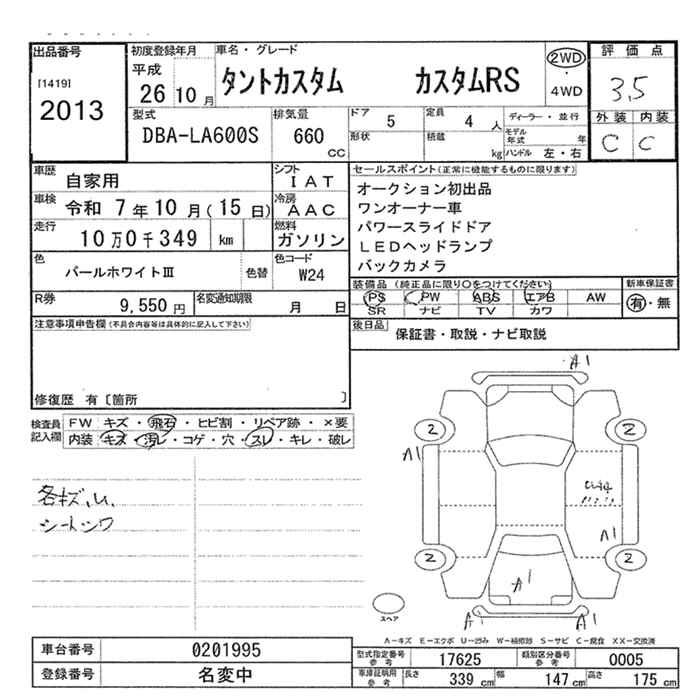 出品番号 初度登録年月 車名・グレード 評価点
[1419] 平成 タントカスタム カスタムRS 2WD ・ 4WD 3.5
2013 26 10 月
型式 排気量 ドア 5 定員 4 人 ディーラー・並行 外装 内装
DBA-LA600S 660 CC 形状 積載 kg モデル年式 年 ハンドル 左・右 C C
車歴 自家用 シフト IAT セールスポイント(正常に機能するものに限ります)
車検 令和 7年10月(15日) 冷房 AAC オークション初出品
走行 10万0千349 km 燃料 ガソリン ワンオーナー車
パワースライドドア
LEDヘッドランプ
バックカメラ
色 パールホワイトⅢ 色替 色コード W24
装備品 (純正品に限り○をつけてください) 新車保証書
PS PW ABS エアB AW 有・無
SR ナビ TV カワ
R券 9,550円 名変通知期限 月 日
注意事項申告欄(不具合内容等は具体的に記入して下さい) 後日品 保証書・取説・ナビ取説
修復歴 有〔箇所 〕
検査員記入欄 FW キズ・飛石・ヒビ割・リペア跡・×要
内装 キズ・汚レ・コゲ・穴・スレ・キレ・破レ
各キズ.U.
シートシワ
A1
2 2
A1
A1
2 2
A1
A1
スペア
A-キズ E-エクボ U-凹み W-補修跡 S-サビ C-腐食 XX-交換済
車台番号 0201995 型式指定番号 参考 17625 類別区分番号 参考 0005
登録番号 名変中 車庫証明用 参考 長さ 339 cm 幅 147 cm 高さ 175 cm